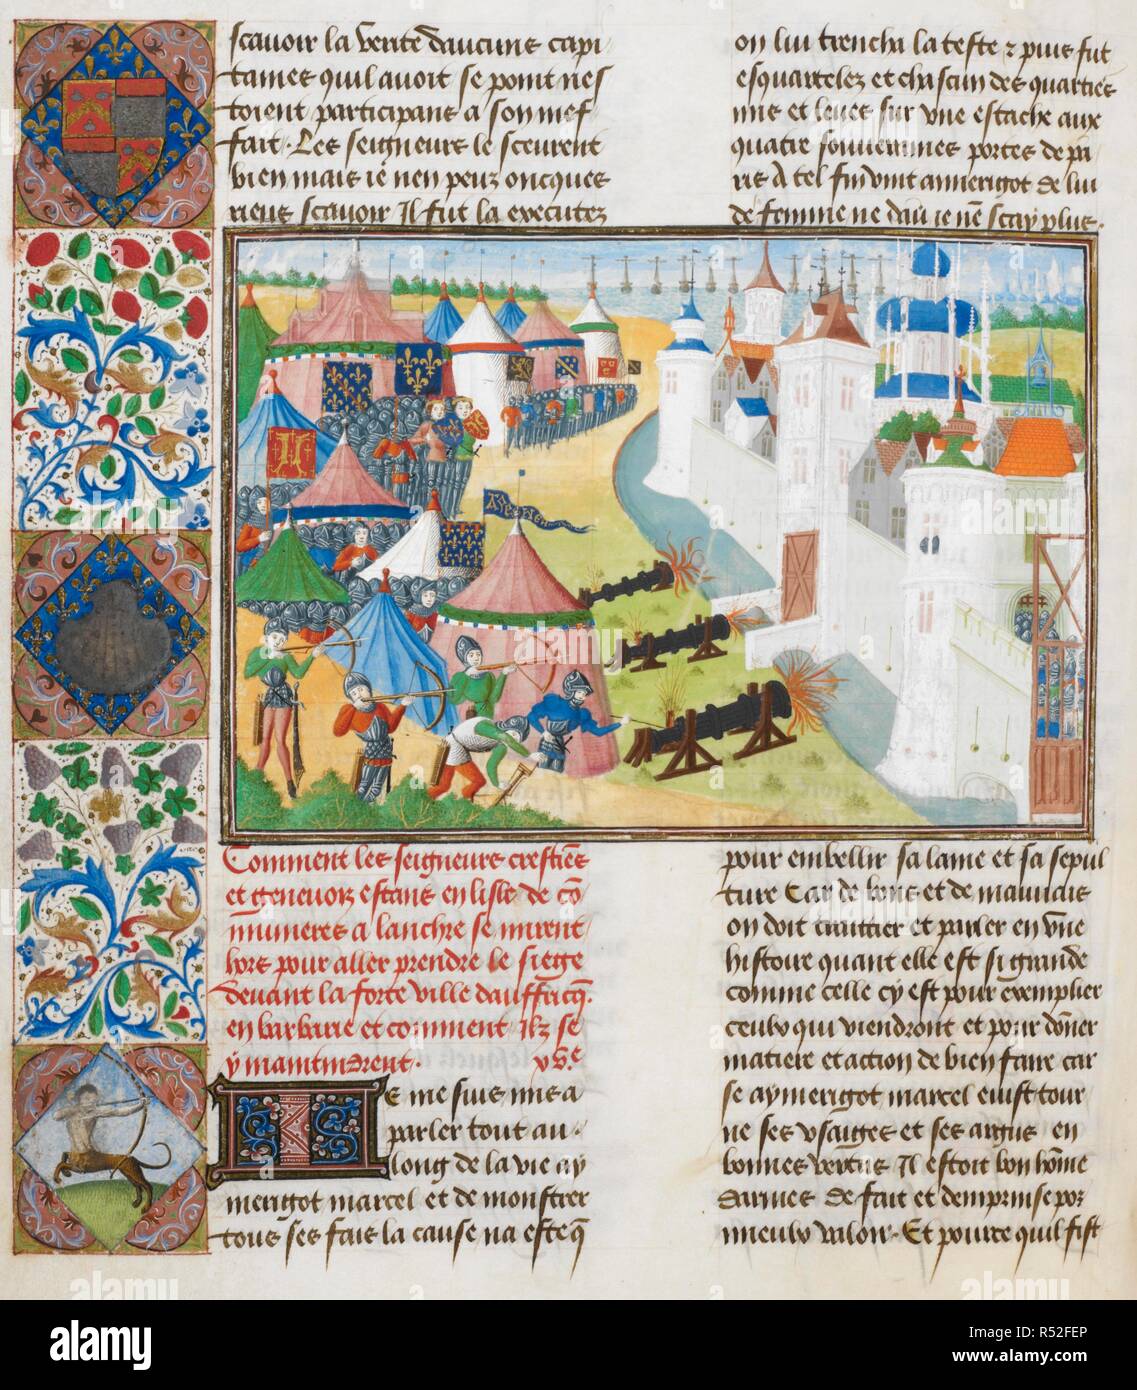 scauoir la verite daucuns capi
taines quil auoit se point nes
toient participans a son mef
fait. Les seigneurs le sceurent
bien mais ie nen peuz oncques
riens scauoir Il fut la executez
Comment les seigneurs crestiens
et geneuois estans en lisle de co
munieres a lanchre se mirent
hors pour aller prendre le siege
deuant la forte ville dauffricq.
en barbarie et comment ilz se
y maintindrent.
E me suis mis a
parler tout au
long de la vie ay
merigot marcel et de monstrer
tous ses fais la cause na este q̄
on lui trencha la teste et puis fut
esquartelez et chascun des quartiers
mis et leues sur vne estache aux
quatre souueraines portes de pa
ris A tel fin vint aimerigot de lui
de femme ne dau ie nē scay plus.
pour embellir sa lame et sa sepul
ture Car de bons et de mauuais
on doit traittier et parler en vne
histoire quant elle est si grande
comme celle cy est pour exemplier
ceulx qui viendront et pour dōner
matiere et action de bien faire car
se aymerigot marcel euist tour
ne ses vsaiges et ses argus en
bonnes vertus Il estoit bon hōme
darmes de fait et demprinse pour
mieulx valoir. Et pource quil fist
alamy
Image ID: R52FEP
www.alamy.com